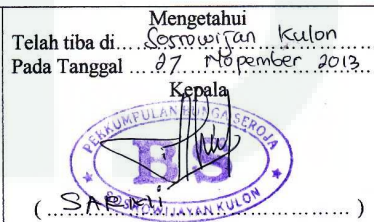 Mengetahui
Telah tiba di....Sorrowijan Kulon
Pada Tanggal ....27 Nopember 2013
Kepala
PERKUMPULAN BUNGA SEROJA
BS
SOSROWIJAYAN KULON
( ....SARJILI.................... )